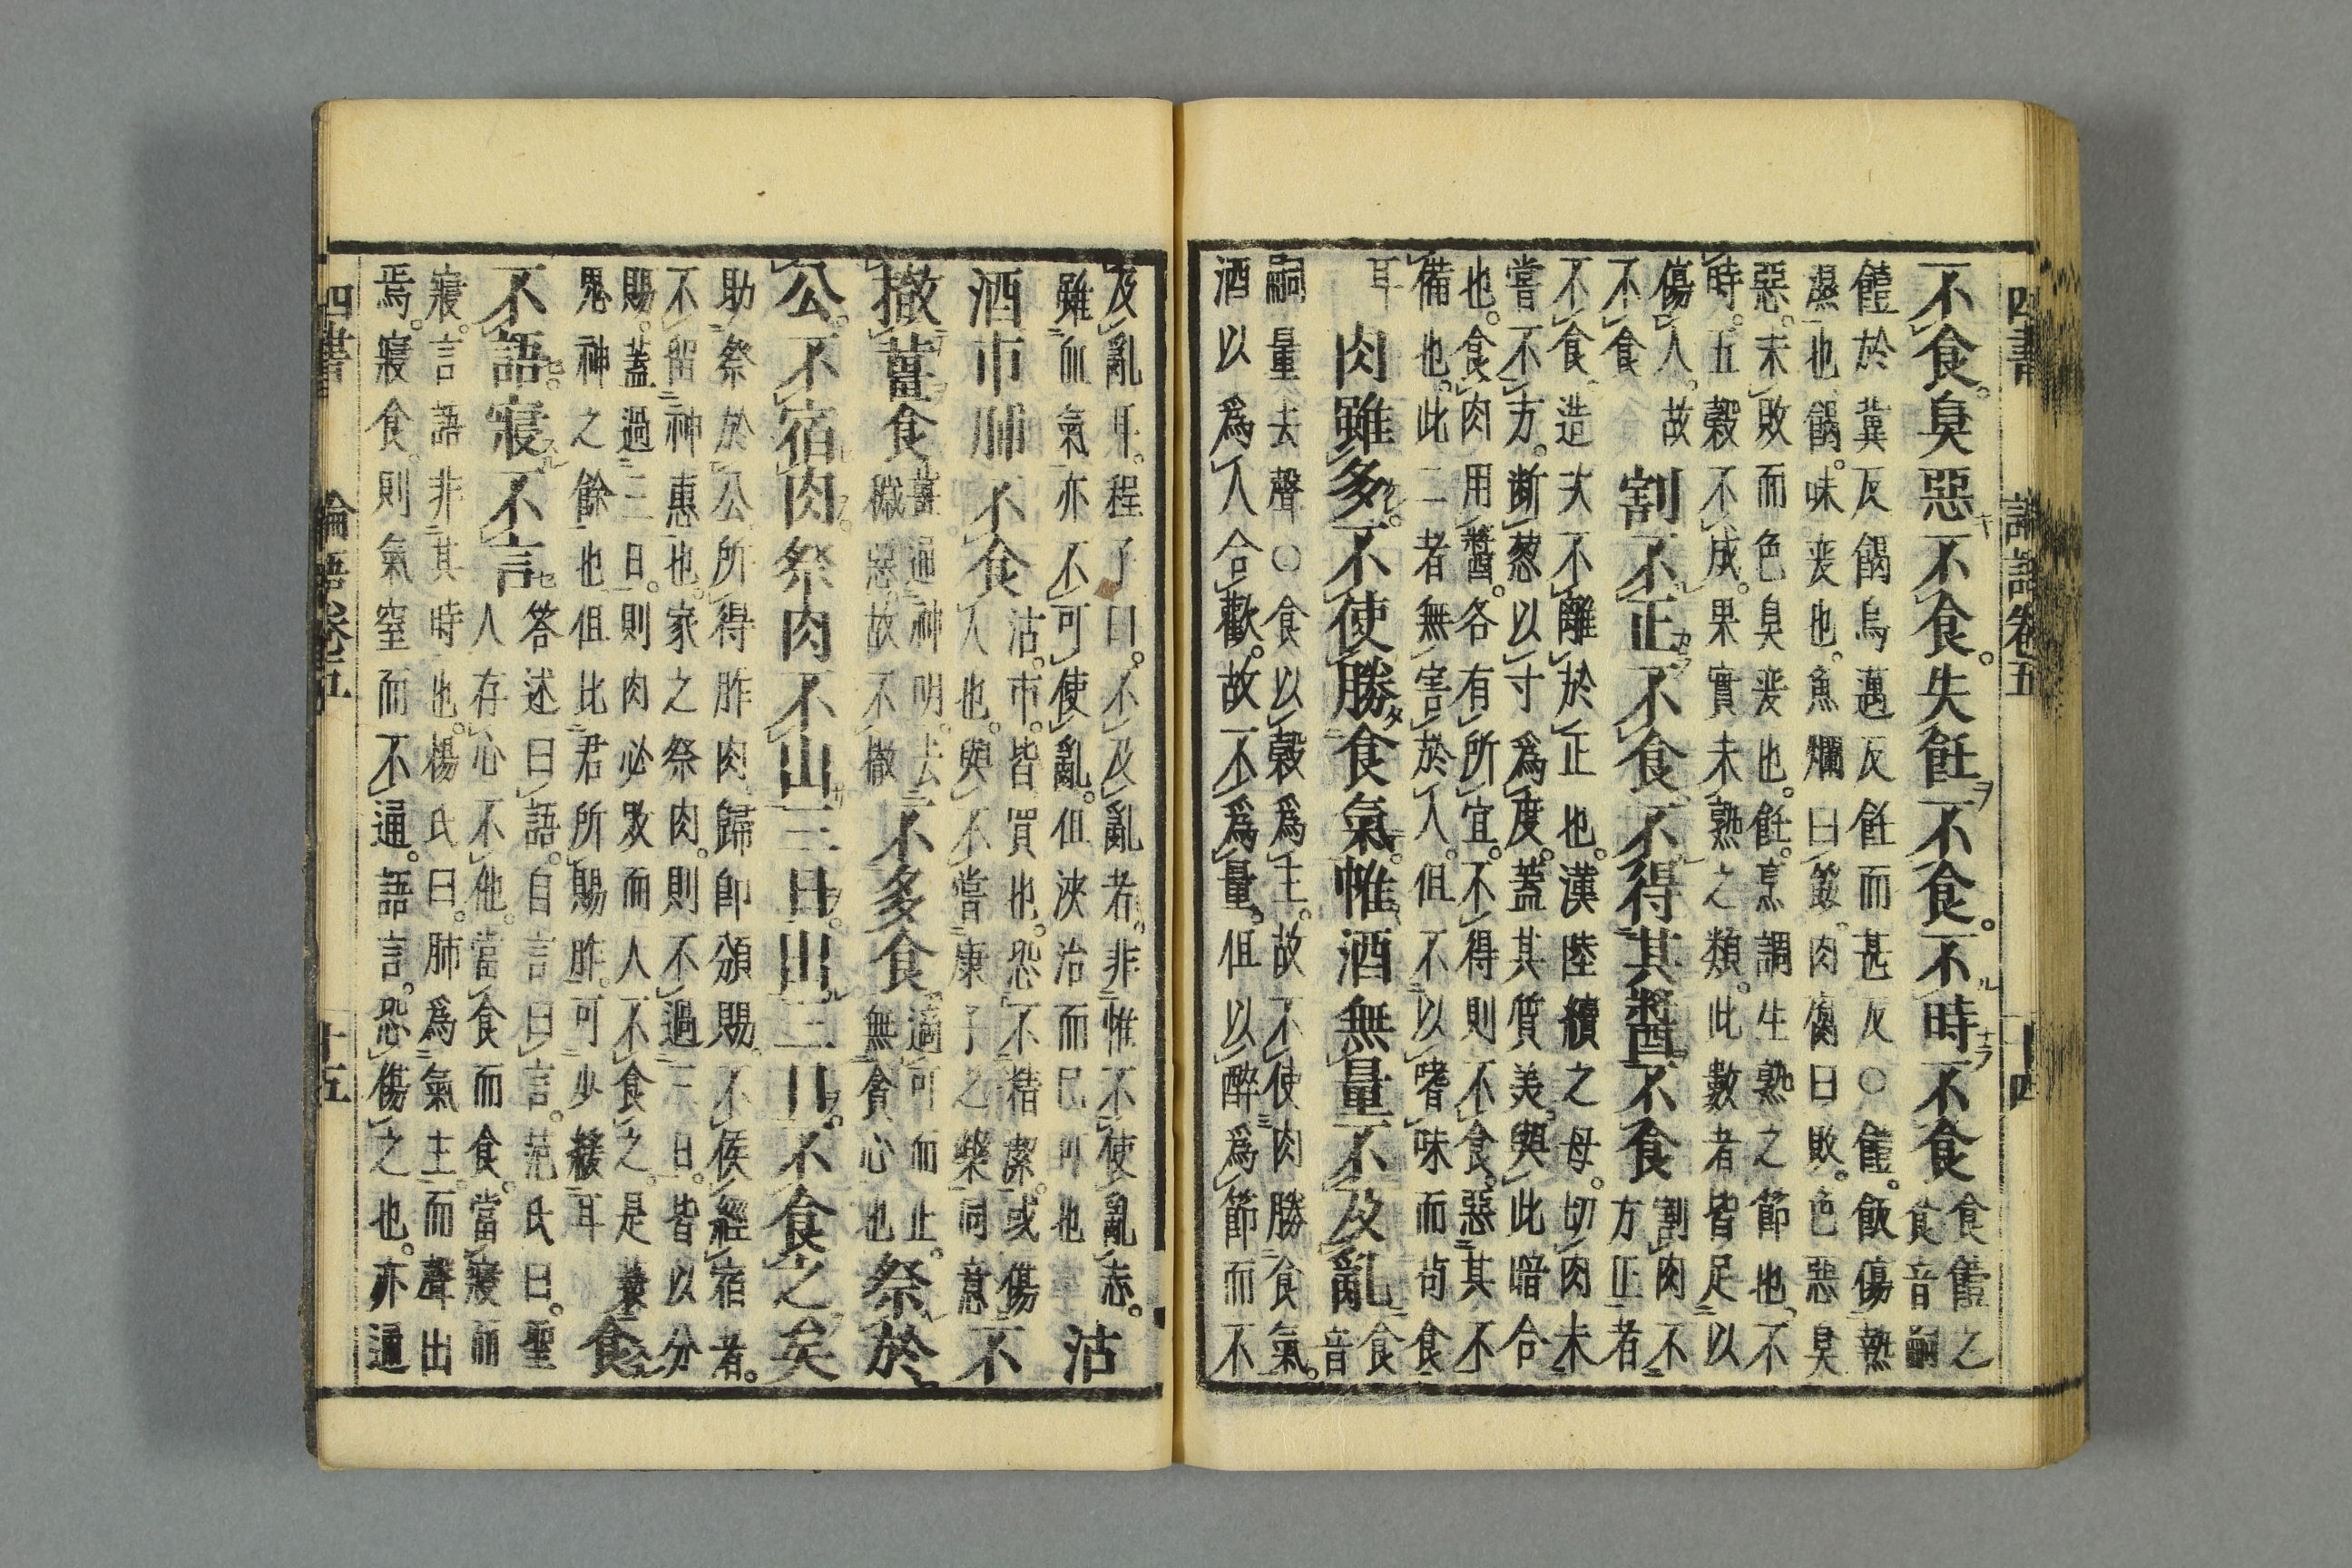 四書 論語卷五 十四
不食。臭惡不食。失飪不食。不時不食 食饐之
食音嗣
饐於冀反餲烏邁反飪而甚反○饐。飯傷熱
濕也餲。味変也。魚爛曰餒。肉腐曰敗。色惡臭
惡。未敗而色臭変也。飪。烹調生熟之節也。不
時。五穀不成。果實未熟之類。此數者皆足以
傷人。故
不食
割不正不食不得其醬不食 割肉不
方正者
不食。造次不離於正也。漢陸續之母。切肉未
嘗不方。斷葱以寸為度。蓋其質美。與此暗合
也。食肉用醬。各有所宜。不得則不食。惡其不
備也。此二者無害於人。但不以嗜味而苟食
耳
肉雖多。不使勝食氣。惟酒無量不及亂 食
音
嗣量去聲○食以穀為主。故不使肉勝食氣。
酒以為人合歡。故不為量。但以醉為節而不
及亂耳。程子曰。不及亂者。非惟不使亂志。
雖血氣亦不可使亂。但浹洽而已可也
沽
酒市脯不食 沽。市。皆買也。恐不精潔。或傷
人也。與不嘗康子之藥同意
不
撤薑食 薑通神明。去
穢惡。故不撤
不多食 適可而止。
無貪心也
祭於
公。不宿肉。祭肉不出三日。出三日。不食之矣
助祭於公所得胙肉歸卽頒賜。不俟經宿者。
不留神惠也。家之祭肉。則不過三日。皆以分
賜。蓋過三日。則肉必敗而人不食之。是褻
鬼神之餘也但比君所賜胙。可少緩耳
食
不語。寢不言 答述曰語。自言曰言。范氏曰。聖
人存心不他。當食而食。當寢而
寢。言語非其時也。楊氏曰。肺為氣主。而聲出
焉。寢食。則氣窒而不通。語言。恐傷之也。亦通
四書 論語卷五 十五